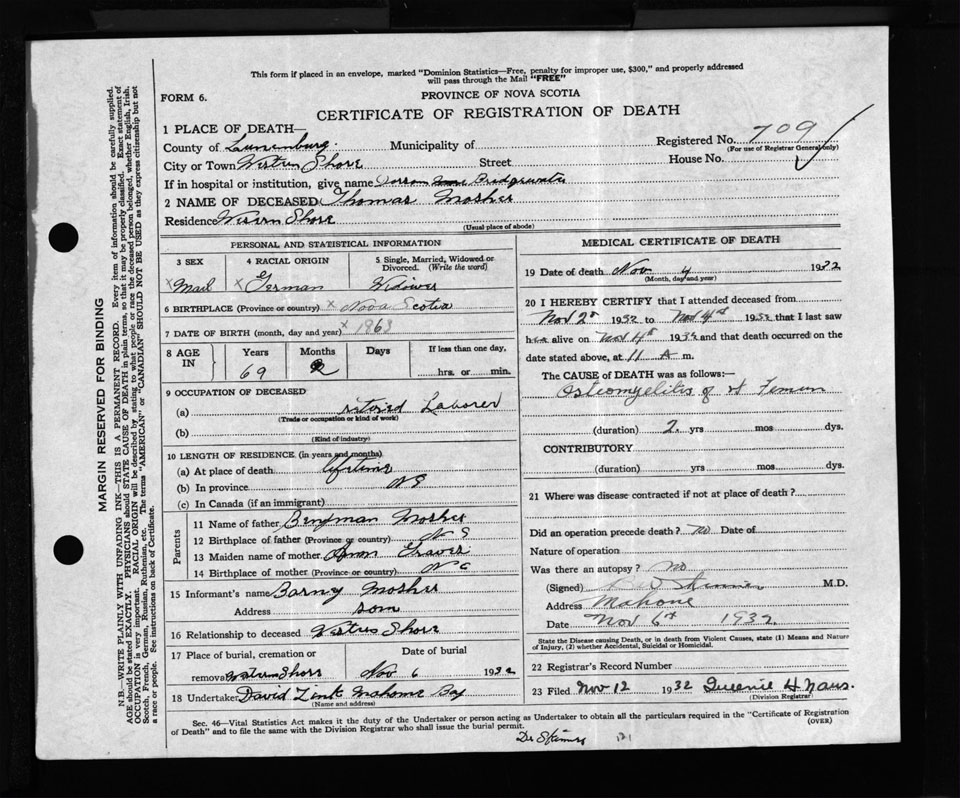 This form if placed in an envelope, marked "Dominion Statistics—Free, penalty for improper use, $300," and properly addressed
will pass through the Mail "FREE"
FORM 6.
PROVINCE OF NOVA SCOTIA
CERTIFICATE OF REGISTRATION OF DEATH
1 PLACE OF DEATH—
Registered No. 709
(For use of Registrar General only)
County of Lunenburg Municipality of
House No.
City or Town Westren Shore Street
If in hospital or institution, give name Bridgewater
2 NAME OF DECEASED Thomas Mosher
Residence Western Shore
(Usual place of abode)
PERSONAL AND STATISTICAL INFORMATION
3 SEX 4 RACIAL ORIGIN 5 Single, Married, Widowed or Divorced. (Write the word)
x Mail x German Widower
6 BIRTHPLACE (Province or country) x Nova Scotia
7 DATE OF BIRTH (month, day and year) x 1863
8 AGE IN Years Months Days If less than one day,
69 2 hrs. or min.
9 OCCUPATION OF DECEASED
(a) retired Laborer
(Trade or occupation or kind of work)
(b)
(Kind of industry)
10 LENGTH OF RESIDENCE (in years and months)
(a) At place of death lifetime
(b) In province NS
(c) In Canada (if an immigrant)
Parents
11 Name of father Benjman Mosher
12 Birthplace of father (Province or country) N S
13 Maiden name of mother
14 Birthplace of mother (Province or country) N S
15 Informant's name Barny Mosher
Address som
16 Relationship to deceased Westren Shore
17 Place of burial, cremation or Date of burial
removal Western Shore Nov 6 1932
18 Undertaker David Zink Mahone Bay
(Name and address)
MEDICAL CERTIFICATE OF DEATH
19 Date of death Nov 4 1932
(Month, day and year)
20 I HEREBY CERTIFY that I attended deceased from
Nov 2nd 1932 to Nov 4th 1932 that I last saw
him alive on Nov 4th 1932 and that death occurred on the
date stated above, at 11 A m.
The CAUSE of DEATH was as follows:—
Osteomyelitis of rt Femur
(duration) 2 yrs mos dys.
CONTRIBUTORY
(duration) yrs mos dys.
21 Where was disease contracted if not at place of death?
Did an operation precede death? no Date of
Nature of operation
Was there an autopsy? no
(Signed) Skinner M.D.
Address Mahone
Date Nov 6th 1932
State the Disease causing Death, or in death from Violent Causes, state (1) Means and Nature
of Injury, (2) whether Accidental, Suicidal or Homicidal.
22 Registrar's Record Number
23 Filed Nov 12 1932 Queenie H Naus.
(Division Registrar)
Sec. 46—Vital Statistics Act makes it the duty of the Undertaker or person acting as Undertaker to obtain all the particulars required in the "Certificate of Registration
of Death" and to file the same with the Division Registrar who shall issue the burial permit.
(OVER)
Dr Skinner 121
MARGIN RESERVED FOR BINDING
N.B.—WRITE PLAINLY WITH UNFADING INK—THIS IS A PERMANENT RECORD. Every item of information should be carefully supplied.
AGE should be stated EXACTLY. PHYSICIANS should STATE CAUSE OF DEATH in plain terms, so that it may be properly classified. Exact statement of
OCCUPATION is very important. RACIAL ORIGIN will be described by stating to what people or race the deceased person belonged, whether English, Irish,
Scotch, French, German, Russian, Ruthenian, etc. The terms "AMERICAN" or "CANADIAN" SHOULD NOT BE USED as they express citizenship but not
a race or people. See instructions on back of Certificate.